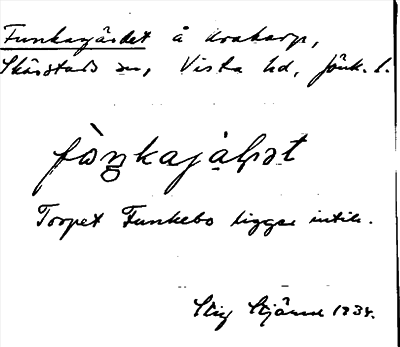 Funkagärdet å Drakarp,
Skärstads sn, Vista hd, Jönk. l.
fòŋkajàḷət
Torpet Funkebo ligger intill.
Stig 1934.